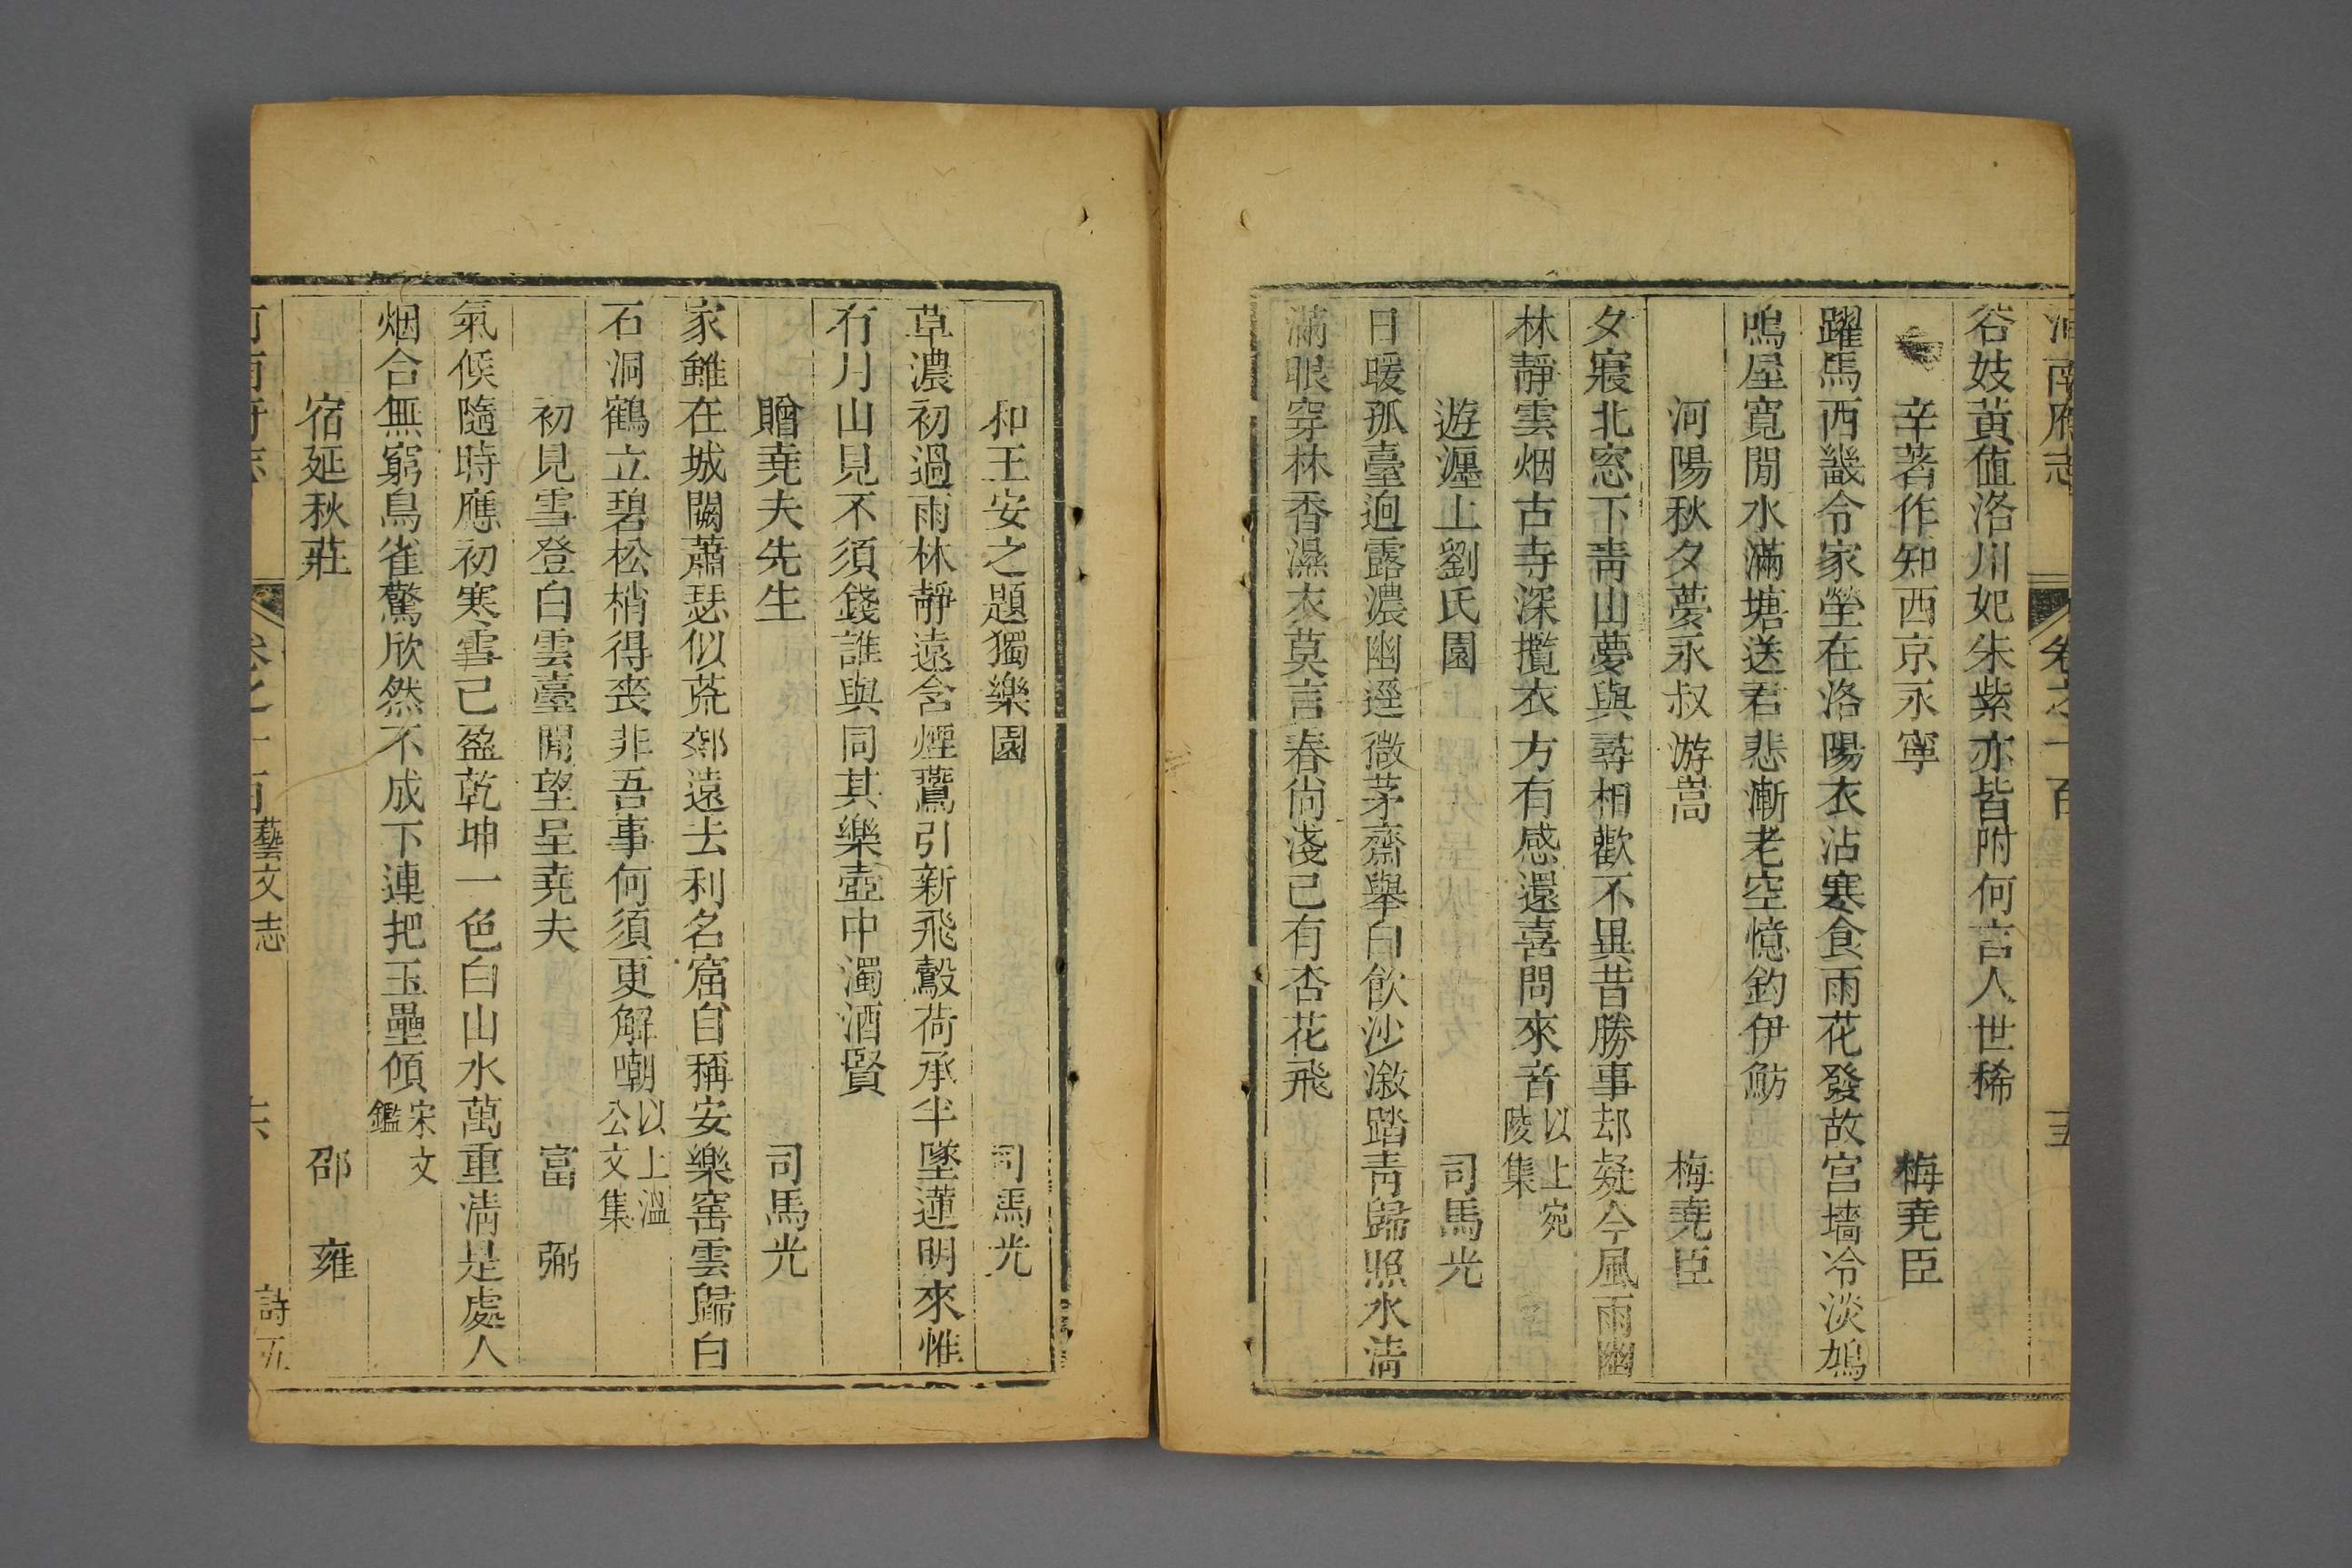 河南府志 卷之一百 五
谷妓黃值洛川妃朱紫亦皆附何言人世稀
辛著作知西京永寧 梅堯臣
躍馬西畿令家塋在洛陽衣沾寒食雨花發故宮墻冷淡鳩
鳴屋寬閒水滿塘送君悲漸老空憶釣伊魴
河陽秋夕夢永叔游嵩 梅堯臣
夕寢北窓下靑山夢與尋相歡不異昔勝事却疑今風雨幽
林靜雲烟古寺深攬衣方有感還喜問來音以上宛陵集
遊瀍上劉氏園 司馬光
日暖孤臺逈露濃幽逕微茅齋舉白飲沙漵踏靑歸照水淸
滿眼穿林香濕衣莫言春尙淺已有杏花飛
和王安之題獨樂園 司馬光
草濃初過雨林靜遠含煙鷰引新飛鷇荷承半墜蓮明來惟
有月山見不須錢誰與同其樂壺中濁酒賢
贈堯夫先生 司馬光
家雖在城闕蕭瑟似荒郊遠去利名窟自稱安樂窩雲歸白
石洞鶴立碧松梢得喪非吾事何須更解嘲以上溫公文集
初見雪登白雲臺閒望呈堯夫 富弼
氣候隨時應初寒雪已盈乾坤一色白山水萬重淸是處人
烟合無窮鳥雀驚欣然不成下連把玉罍傾宋文鑑
宿延秋莊 邵雍
河南府志 卷之一百 藝文志 六 詩五